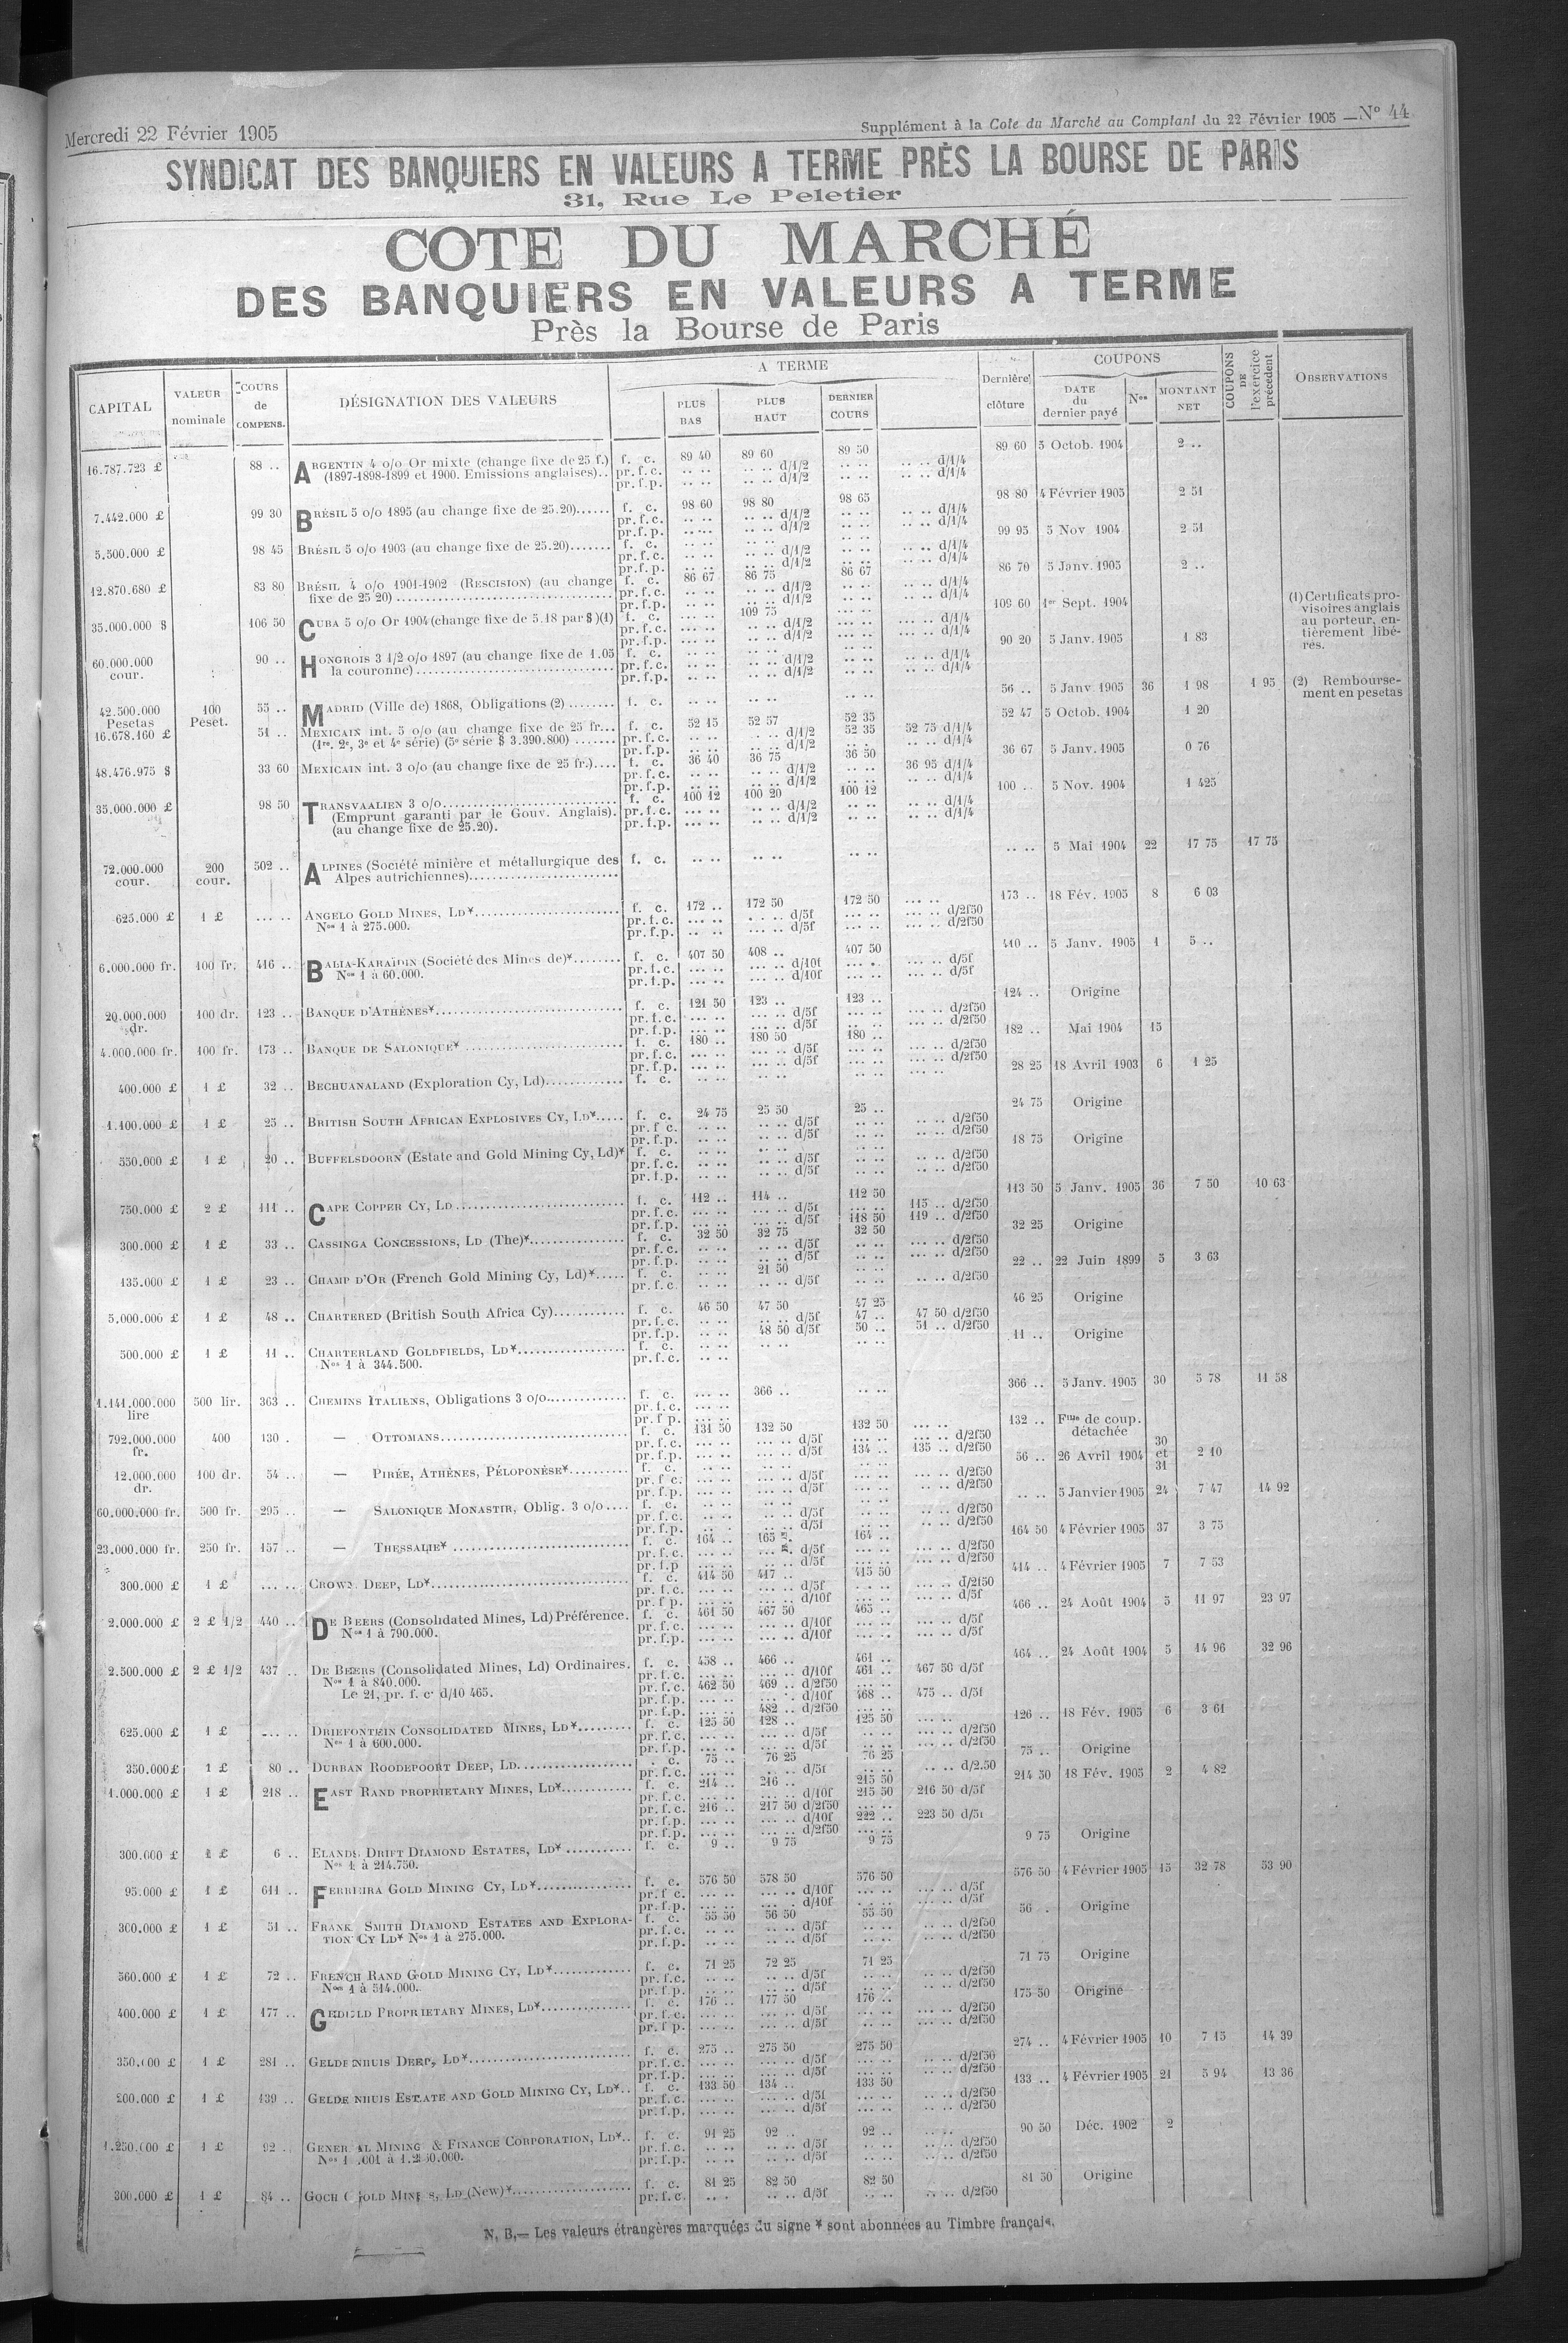 Mercredi 22 Février 1905
Supplément à la Cote du Marché au Comptant du 22 Février 1905 — N° 44
SYNDICAT DES BANQUIERS EN VALEURS A TERME PRÈS LA BOURSE DE PARIS
31, Rue Le Peletier
COTE DU MARCHÉ
DES BANQUIERS EN VALEURS A TERME
Près la Bourse de Paris
CAPITAL | VALEUR nominale | COURS de COMPENS. | DÉSIGNATION DES VALEURS | A TERME | PLUS BAS | PLUS HAUT | DERNIER COURS | Dernière clôture | COUPONS | DATE du dernier payé | Nos | MONTANT NET | COUPONS DE l'exercice précédent | OBSERVATIONS
16.787.723 £ 88 .. ARGENTIN 4 o/o Or mixte (change fixe de 25 f.) f. c. 89 40 89 60 89 50 89 60 5 Octob. 1904 2 ..
(1897-1898-1899 et 1900. Emissions anglaises).. pr. f. c. .. .. .. .. d/1/2 .. .. .. .. d/1/4
pr. f. p. .. .. .. .. d/1/2 .. .. .. .. d/1/4
7.442.000 £ 99 30 BRÉSIL 5 o/o 1895 (au change fixe de 25.20)...... f. c. 98 60 98 80 98 65 98 80 4 Février 1905 2 51
pr. f. c. .. .. .. .. d/1/2 .. .. .. .. d/1/4
pr. f. p. .. .. .. .. d/1/2 .. .. .. .. d/1/4
5.500.000 £ 98 45 BRÉSIL 5 o/o 1903 (au change fixe de 25.20)....... f. c. .. .. .. .. 99 95 5 Nov 1904 2 51
pr. f. c. .. .. .. .. d/1/2 .. .. .. .. d/1/4
pr. f. p. .. .. .. .. d/1/2 .. .. .. .. d/1/4
12.870.680 £ 83 80 BRÉSIL 4 o/o 1901-1902 (RESCISION) (au change f. c. 86 67 86 75 86 67 86 70 5 Janv. 1905 2 ..
fixe de 25 20) pr. f. c. .. .. .. .. d/1/2 .. .. .. .. d/1/4
pr. f. p. .. .. .. .. d/1/2 .. .. .. .. d/1/4
35.000.000 $ 106 50 CUBA 5 o/o Or 1904 (change fixe de 5.18 par $) (1) f. c. ... .. 109 75 ... .. 109 60 1er Sept. 1904
pr. f. c. ... .. .. .. d/1/2 ... .. ... .. d/1/4
pr. f. p. ... .. .. .. d/1/2 ... .. ... .. d/1/4
(1) Certificats provisoires anglais
au porteur, entièrement libérés.
60.000.000 cour. 90 .. HONGROIS 3 1/2 o/o 1897 (au change fixe de 1.05 f. c. .. .. .. .. .. .. 90 20 5 Janv. 1905 1 83
la couronne) pr. f. c. .. .. .. .. d/1/2 .. .. .. .. d/1/4
pr. f. p. .. .. .. .. d/1/2 .. .. .. .. d/1/4
42.500.000 Pesetas 100 Peset. 55 .. MADRID (Ville de) 1868, Obligations (2) ........ f. c. .. .. .. .. .. .. 56 .. 5 Janv. 1905 36 1 98 1 95 (2) Remboursement en pesetas
16.678.160 £ 51 .. MEXICAIN int. 5 o/o (au change fixe de 25 fr... f. c. 52 15 52 57 52 35 52 47 5 Octob. 1904 1 20
(1re, 2e, 3e et 4e série) (5e série $ 3.390.800) ....... pr. f. c. .. .. .. .. d/1/2 52 35 52 75 d/1/4
pr. f. p. .. .. .. .. d/1/2 .. .. .. .. d/1/4
48.476.975 $ 33 60 MEXICAIN int. 3 o/o (au change fixe de 25 fr.).... f. c. 36 40 36 75 36 50 36 67 5 Janv. 1905 0 76
pr. f. c. .. .. .. .. d/1/2 .. .. 36 95 d/1/4
pr. f. p. .. .. .. .. d/1/2 .. .. .. .. d/1/4
35.000.000 £ 98 50 TRANSVAALIEN 3 o/o f. c. 100 12 100 20 100 12 100 .. 5 Nov. 1904 1 425
(Emprunt garanti par le Gouv. Anglais). pr. f. c. ... .. .. .. d/1/2 .. .. .. .. d/1/4
(au change fixe de 25.20). pr. f. p. ... .. .. .. d/1/2 .. .. .. .. d/1/4
72.000.000 cour. 200 cour. 502 .. ALPINES (Société minière et métallurgique des f. c. .. .. .. .. .. .. .. .. 5 Mai 1904 22 17 75 17 75
Alpes autrichiennes)
625.000 £ 1 £ ... .. ANGELO GOLD MINES, LD* f. c. 172 .. 172 50 172 50 ... .. 173 .. 18 Fév. 1905 8 6 03
Nos 1 à 275.000. pr. f. c. ... .. .. .. d/5f ... .. ... .. d/2f50
pr. f. p. .. .. ... .. d/5f ... .. ... .. d/2f50
6.000.000 fr. 100 fr. 416 .. BALIA-KARAÏDIN (Société des Mines de)* f. c. 407 50 408 .. 407 50 410 .. 5 Janv. 1905 1 5 ..
Nos 1 à 60.000. pr. f. c. ... .. ... .. d/10f ... .. ... .. d/5f
pr. f. p. ... .. ... .. d/10f ... .. ... .. d/5f
20.000.000 dr. 100 dr. 123 .. BANQUE D'ATHÈNES* f. c. 121 50 123 .. 123 .. 124 .. Origine
pr. f. c. ... .. ... .. d/5f ... .. ... .. d/2f50
pr. f. p. ... .. ... .. d/5f .. .. ... .. d/2f50
4.000.000 fr. 100 fr. 173 .. BANQUE DE SALONIQUE* f. c. 180 .. 180 50 180 .. 182 .. Mai 1904 15
pr. f. c. ... .. ... .. d/5f ... .. ... .. d/2f50
pr. f. p. ... .. ... .. d/5f ... .. ... .. d/2f50
400.000 £ 1 £ 32 .. BECHUANALAND (Exploration Cy, Ld) f. c. .. .. .. .. ... .. ... .. 28 25 18 Avril 1903 6 1 25
1.100.000 £ 1 £ 25 .. BRITISH SOUTH AFRICAN EXPLOSIVES CY, LD* f. c. 24 75 25 50 25 .. 24 75 Origine
pr. f. c. .. .. .. .. d/5f .. .. .. .. d/2f50
pr. f. p. .. .. .. .. d/5f .. .. .. .. d/2f50
550.000 £ 1 £ 20 .. BUFFELSDOORN (Estate and Gold Mining Cy, Ld)* f. c. .. .. .. .. .. .. 18 75 Origine
pr. f. c. .. .. .. .. d/5f .. .. .. .. d/2f50
pr. f. p. .. .. .. .. d/5f .. .. .. .. d/2f50
750.000 £ 2 £ 111 .. CAPE COPPER CY, LD f. c. 112 .. 114 .. 112 50 113 50 5 Janv. 1905 36 7 50 10 63
pr. f. c. ... .. ... .. d/5f ... .. 115 .. d/2f50
pr. f. p. ... .. ... .. d/5f 118 50 119 .. d/2f50
300.000 £ 1 £ 33 .. CASSINGA CONCESSIONS, LD (The)* f. c. 32 50 32 75 32 50 32 25 Origine
pr. f. c. .. .. .. .. d/5f .. .. ... .. d/2f50
pr. f. p. .. .. .. .. d/5f .. .. ... .. d/2f50
135.000 £ 1 £ 23 .. CHAMP D'OR (French Gold Mining Cy, Ld)* f. c. .. .. 21 50 .. .. 22 .. 22 Juin 1899 5 3 63
pr. f. c. .. .. .. .. d/5f .. .. .. .. d/2f50
5.000.000 £ 1 £ 48 .. CHARTERED (British South Africa Cy) f. c. 46 50 47 50 47 25 46 25 Origine
pr. f. c. .. .. .. .. d/5f 47 .. 47 50 d/2f50
pr. f. p. .. .. 48 50 d/5f 50 .. 51 .. d/2f50
500.000 £ 1 £ 11 .. CHARTERLAND GOLDFIELDS, LD* f. c. .. .. .. .. .. .. 11 .. Origine
Nos 1 à 344.500. pr. f. c. .. ..
1.141.000.000 lire 500 lir. 363 .. CHEMINS ITALIENS, Obligations 3 o/o f. c. ... .. 366 .. .. .. 366 .. 5 Janv. 1905 30 5 78 11 58
pr. f. c. ... ..
pr. f. p. ... ..
792.000.000 fr. 400 130 . — OTTOMANS f. c. 131 50 132 50 132 50 ... .. 132 .. Flles de coup. détachée
pr. f. c. ... .. ... .. d/5f ... .. ... .. d/2f50
pr. f. p. ... .. ... .. d/5f 134 .. 135 .. d/2f50
12.000.000 dr. 100 dr. 54 .. — PIRÉE, ATHÈNES, PÉLOPONÈSE* f. c. .. .. .. .. .. .. 56 .. 26 Avril 1904 30 et 31 2 10
pr. f. c. ... .. ... .. d/5f ... .. ... .. d/2f50
pr. f. p. ... .. ... .. d/5f .. .. .. .. d/2f50
60.000.000 fr. 500 fr. 295 .. — SALONIQUE MONASTIR, Oblig. 3 o/o f. c. .. .. .. .. .. .. .. .. 5 Janvier 1905 24 7 47 14 92
pr. f. c. .. .. .. .. d/5f .. .. .. .. d/2f50
pr. f. p. .. .. .. .. d/5f .. .. .. .. d/2f50
23.000.000 fr. 250 fr. 157 .. — THESSALIE* f. c. 164 .. 165 164 .. 164 50 4 Février 1905 37 3 75
pr. f. c. ... .. d/5f ... .. ... .. d/2f50
pr. f. p. ... .. ... .. d/5f ... .. ... .. d/2f50
300.000 £ 1 £ ... .. CROWN DEEP, LD* f. c. 414 50 417 .. 415 50 414 .. 4 Février 1905 7 7 53
pr. f. c. ... .. ... .. d/5f ... .. ... .. d/2f50
pr. f. p. ... .. ... .. d/10f ... .. ... .. d/5f
2.000.000 £ 2 £ 1/2 440 .. DE BEERS (Consolidated Mines, Ld) Préférence. f. c. 461 50 467 50 465 .. 466 .. 24 Août 1904 5 11 97 23 97
Nos 1 à 790.000. pr. f. c. ... .. ... .. d/10f ... .. ... .. d/5f
pr. f. p. ... .. ... .. d/10f ... .. ... .. d/5f
2.500.000 £ 2 £ 1/2 437 .. DE BEERS (Consolidated Mines, Ld) Ordinaires. f. c. 458 .. 466 .. 461 .. 464 .. 24 Août 1904 5 14 96 32 96
Nos 1 à 840.000. pr. f. c. ... .. ... .. d/10f 461 .. 467 50 d/5f
Le 21, pr. f. c. d/10 465. pr. f. c. 462 50 469 .. d/2f50 ... ..
pr. f. p. ... .. ... . d/10f 468 .. 475 .. d/5f
pr. f. p. ... .. 482 .. d/2f50 ... ..
625.000 £ 1 £ ... .. DRIEFONTEIN CONSOLIDATED MINES, LD* f. c. 125 50 128 .. 125 50 ... .. 126 .. 18 Fév. 1905 6 3 61
Nos 1 à 600.000. pr. f. c. ... .. ... .. d/5f .. .. ... .. d/2f50
pr. f. p. ... .. ... .. d/5f ... .. ... .. d/2f50
350.000 £ 1 £ 80 .. DURBAN ROODEPOORT DEEP, LD f. c. 75 .. 76 25 76 25 75 .. Origine
pr. f. c. ... .. .. .. d/5f .. .. .. .. d/2.50
1.000.000 £ 1 £ 218 .. EAST RAND PROPRIETARY MINES, LD* f. c. 214 .. 216 .. 215 50 214 50 18 Fév. 1905 2 4 82
pr. f. c. ... .. ... .. d/10f 215 50 216 50 d/5f
pr. f. c. 216 .. 217 50 d/2f50 ... ..
pr. f. p. ... .. ... .. d/10f 222 .. 223 50 d/5f
pr. f. p. ... .. ... .. d/2f50 ... ..
300.000 £ 1 £ 6 .. ELANDS DRIFT DIAMOND ESTATES, LD* f. c. 9 .. 9 75 9 75 9 75 Origine
Nos 1 à 214.750.
95.000 £ 1 £ 611 .. FERREIRA GOLD MINING CY, LD* f. c. 576 50 578 50 576 50 576 50 4 Février 1905 15 32 78 53 90
pr. f. c. ... .. ... .. d/10f ... .. ... .. d/5f
pr. f. p. ... .. ... . d/10f ... .. ... .. d/5f
300.000 £ 1 £ 51 .. FRANK SMITH DIAMOND ESTATES AND EXPLORA- f. c. 55 50 56 50 55 50 56 . Origine
TION CY LD* Nos 1 à 275.000. pr. f. c. .. .. .. .. d/5f .. .. .. .. d/2f50
pr. f. p. .. .. .. .. d/5f .. .. .. .. d/2f50
560.000 £ 1 £ 72 .. FRENCH RAND GOLD MINING CY, LD* f. c. 71 25 72 25 71 25 71 75 Origine
Nos 1 à 514.000. pr. f. c. .. .. .. .. d/5f .. .. .. .. d/2f50
pr. f. p. .. .. .. .. d/5f .. .. .. .. d/2f50
400.000 £ 1 £ 177 .. GEDULD PROPRIETARY MINES, LD* f. c. 176 .. 177 50 176 .. 175 50 Origine
pr. f. c. ... .. ... .. d/5f ... .. ... .. d/2f50
pr. f. p. ... .. ... .. d/5f .. .. ... .. d/2f50
350.000 £ 1 £ 281 .. GELDENHUIS DEEP, LD* f. c. 275 .. 275 50 275 50 274 .. 4 Février 1905 10 7 15 14 39
pr. f. c. ... .. ... .. d/5f ... .. .. .. d/2f50
pr. f. p. ... .. ... .. d/5f ... .. ... .. d/2f50
200.000 £ 1 £ 139 .. GELDENHUIS ESTATE AND GOLD MINING CY, LD* f. c. 133 50 134 .. 133 50 133 .. 4 Février 1905 21 5 94 13 36
pr. f. c. ... .. ... .. d/5f ... .. .. .. d/2f50
pr. f. p. ... .. ... .. d/5f ... .. ... .. d/2f50
1.250.000 £ 1 £ 92 .. GENERAL MINING & FINANCE CORPORATION, LD* f. c. 91 25 92 .. 92 .. .. .. 90 50 Déc. 1902 2
Nos 1.001 à 1.250.000. pr. f. c. .. .. .. .. d/5f .. .. .. .. d/2f50
pr. f. p. .. .. .. .. d/5f .. .. .. .. d/2f50
300.000 £ 1 £ 84 .. GOCH GOLD MINES, LD (New)* f. c. 81 25 82 50 82 50 81 50 Origine
pr. f. c. .. . .. .. d/5f .. .. .. .. d/2f50
N. B.— Les valeurs étrangères marquées du signe * sont abonnées au Timbre français.